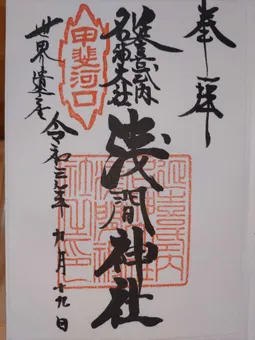 奉拝
延喜式内
名神大社
浅間神社
甲斐河口
世界遺産
令和三年九月十九日